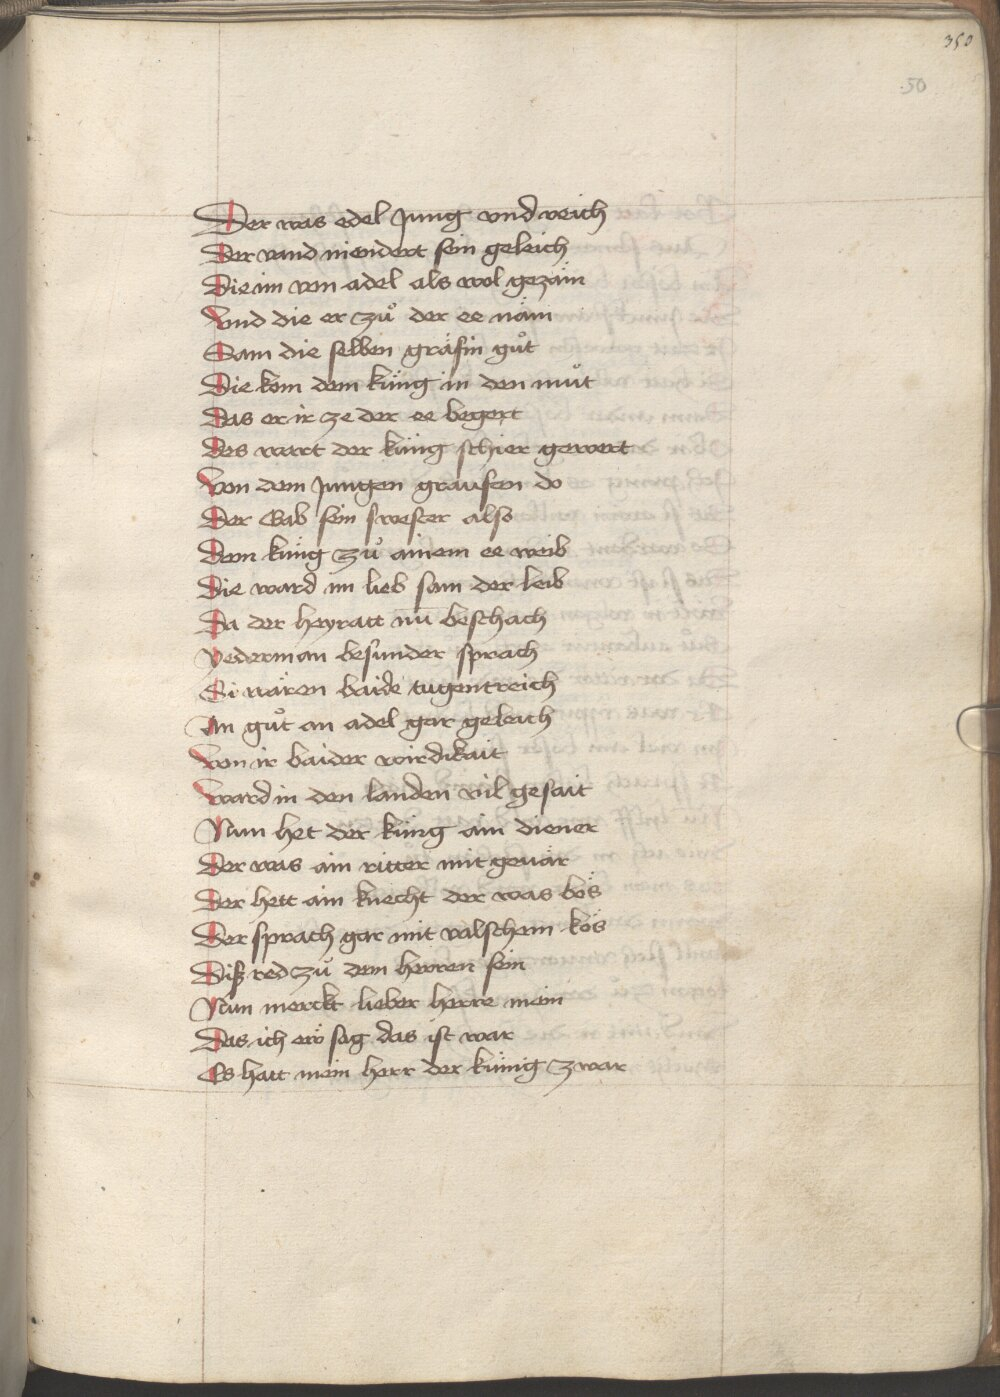 350
50
Der was edel Jung vnd reich
Der vand niendert sein geleich
Die im von adel als wol gezäm
Vnd die er zuͦ der ee näm
Sam die selben gräfin guͦt
Die kom dem küng in den muͦt
Das er ir ze der ee begert
Des wart der küng schier gewert
Von dem Jungen grausen do
Der Gab sein swester also
Dem küng zuͦ ainem ee weib
Die ward im lieb sam der leib
Da der heyratt nu̅ beschach
Yederman besunder sprach
Si wären baide tugentreich
An guͦt an adel gar geleich
Von ir baider wirdikait
Ward in den landen vil gesait
Nun het der küng ain diener
Der was ain ritter mit gevär
Der hett ain knecht der was bös
Der sprach gar mit valschem kös
Diß red zuͦ dem herren sein
Nun merckt lieber herre mein
Das ich ew sag das ist war
Es hatt mein herr der künig zwar